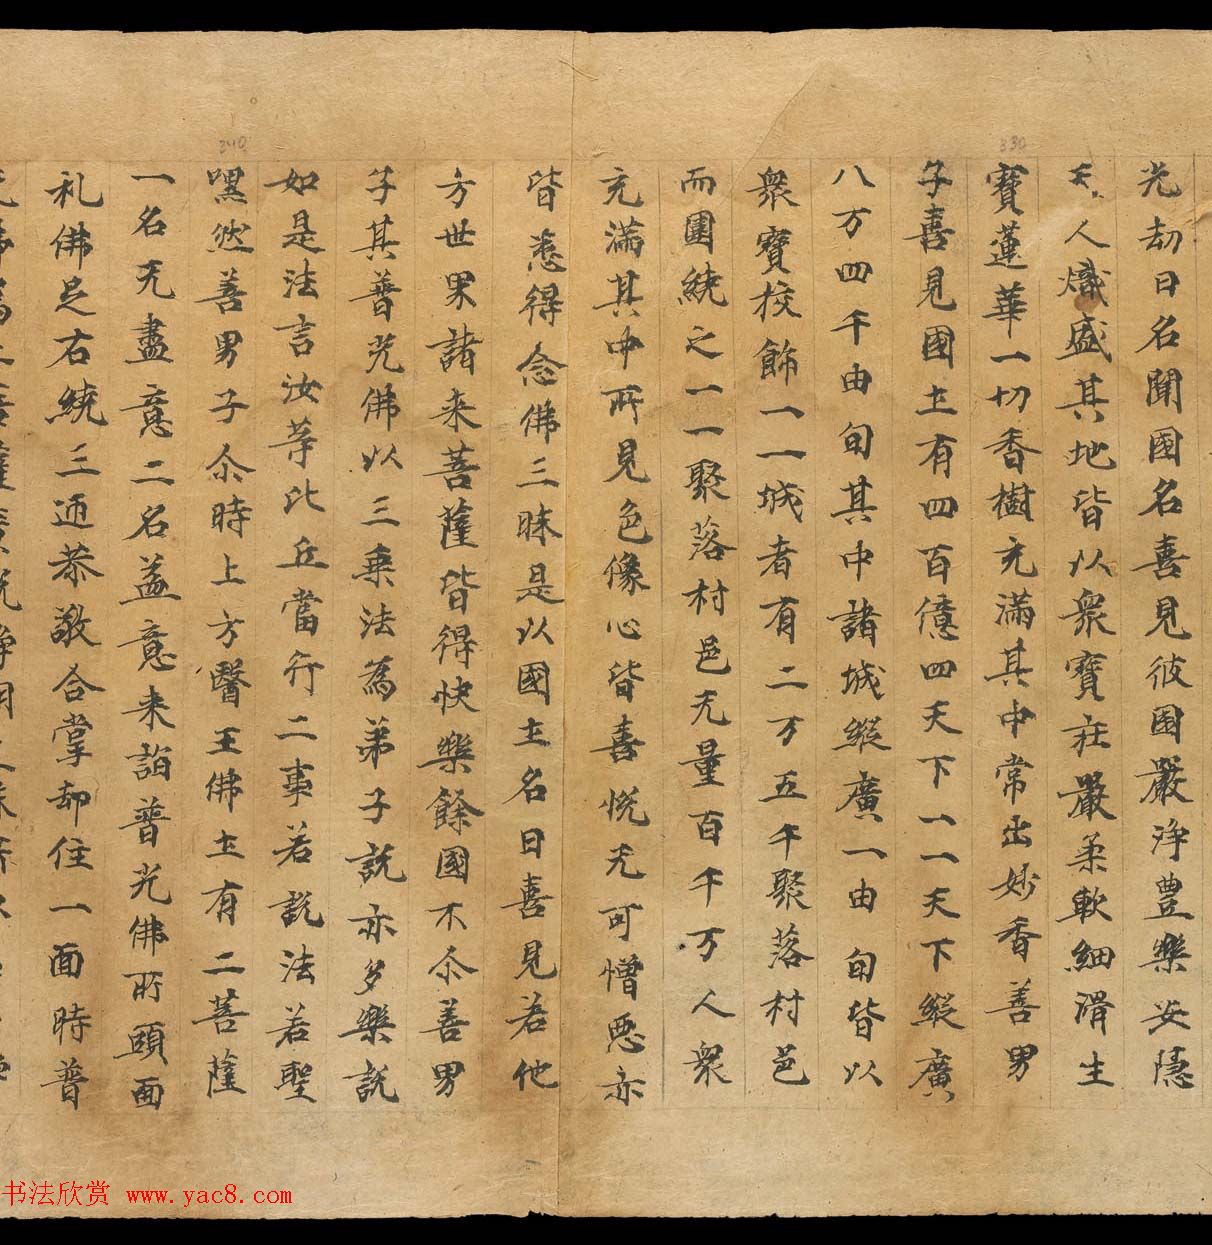 光劫曰名聞國名喜見彼國嚴淨豊樂安隱
天人熾盛其地皆以衆寶莊嚴柔軟細滑生
寶蓮華一切香樹充滿其中常出妙香善男
子喜見國土有四百億四天下一一天下縱廣
八万四千由旬其中諸城縱廣一由旬皆以
衆寶挍飾一一城者有二万五千聚落村邑
而圍繞之一一聚落村邑无量百千万人衆
充滿其中所見色像心皆喜悅无可憎惡亦
皆悉得念佛三昧是以國土名曰喜見若他
方世界諸来菩薩皆得快樂餘國不尒善男
子其普光佛以三乗法為弟子説亦多樂説
如是法言汝等比丘當行二事若説法若聖
嘿然善男子尒時上方醫王佛土有二菩薩
一名无盡意二名益意来詣普光佛所頭面
礼佛足右繞三迊恭敬合掌却住一面時普
340
330
书法欣赏 www.yac8.com